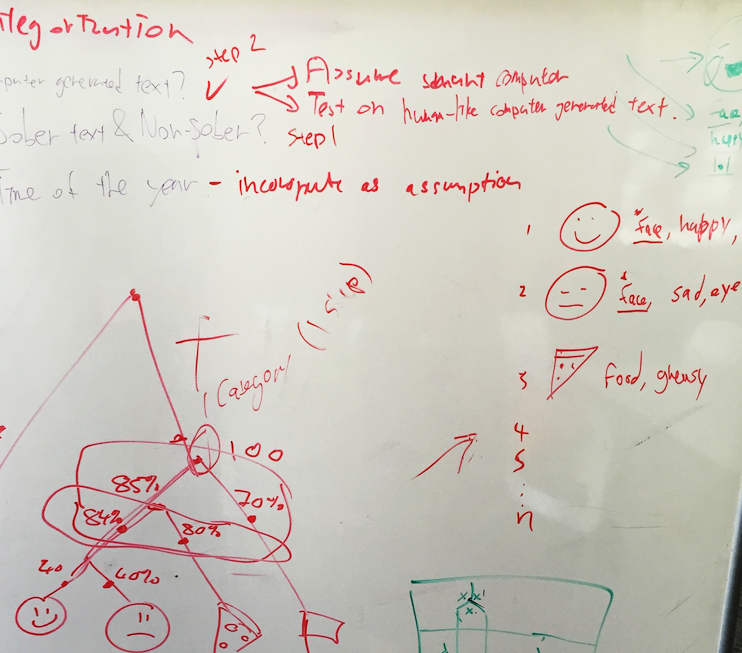 step 2
computer generated text?
Assume
computer
Test on human-like computer generated text.
Sober text & Non-Sober?
step 1
Time of the year - incorporate as assumption
1 face, happy,
2 face, sad, eye
3 food, cheesy
4
5
n
1 Category (1 step)
100
85%
70%
84%
80%
40
40%
happy
lol